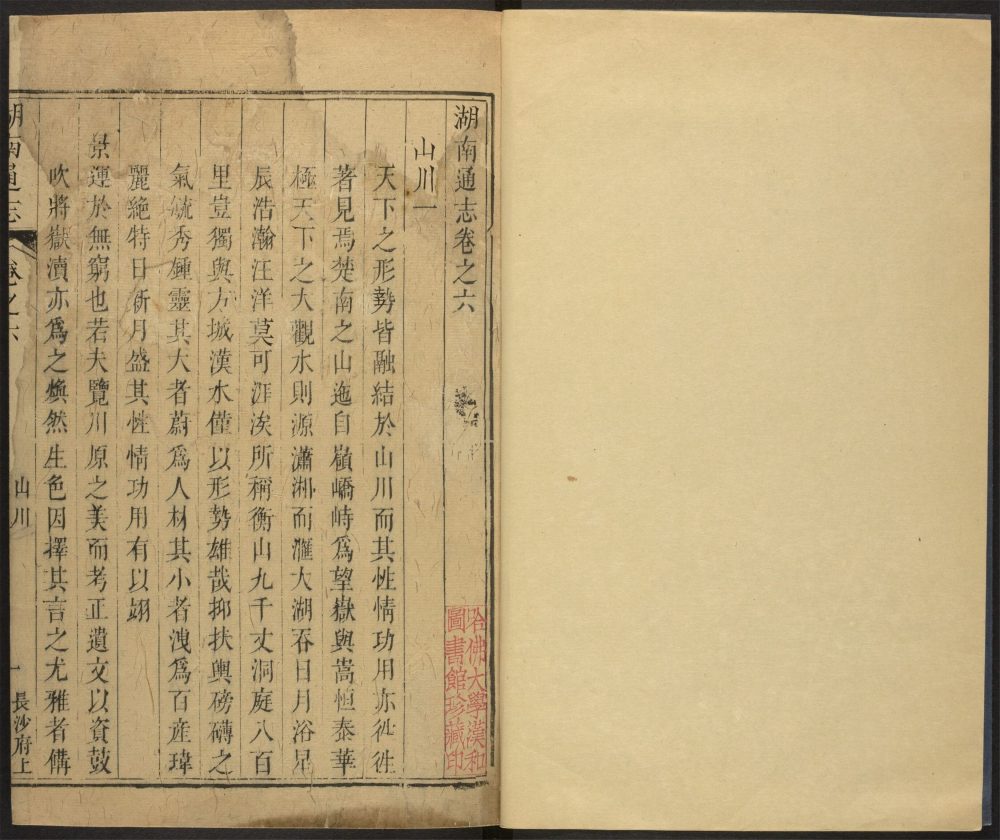 湖南通志卷之六
山川一
天下之形勢皆融結於山川而其性情功用亦徃徃
著見焉楚南之山迤自嶺嶠峙爲望嶽與嵩恒泰華
極天下之大觀水則源瀟湘而滙大湖吞日月浴星
辰浩瀚汪洋莫可涯涘所稱衡山九千丈洞庭八百
里豈獨與方城漢水僅以形勢雄哉抑扶輿磅礴之
氣毓秀鍾靈其大者蔚爲人材其小者洩爲百産瑋
麗絶特日新月盛其性情功用有以翊
景運於無窮也若夫覽川原之美而考正遺文以資鼓
吹將嶽瀆亦爲之煥然生色因擇其言之尤雅者備
湖南通志
卷之六
山川
一
長沙府上
哈佛大學漢和
圖書館珍藏印